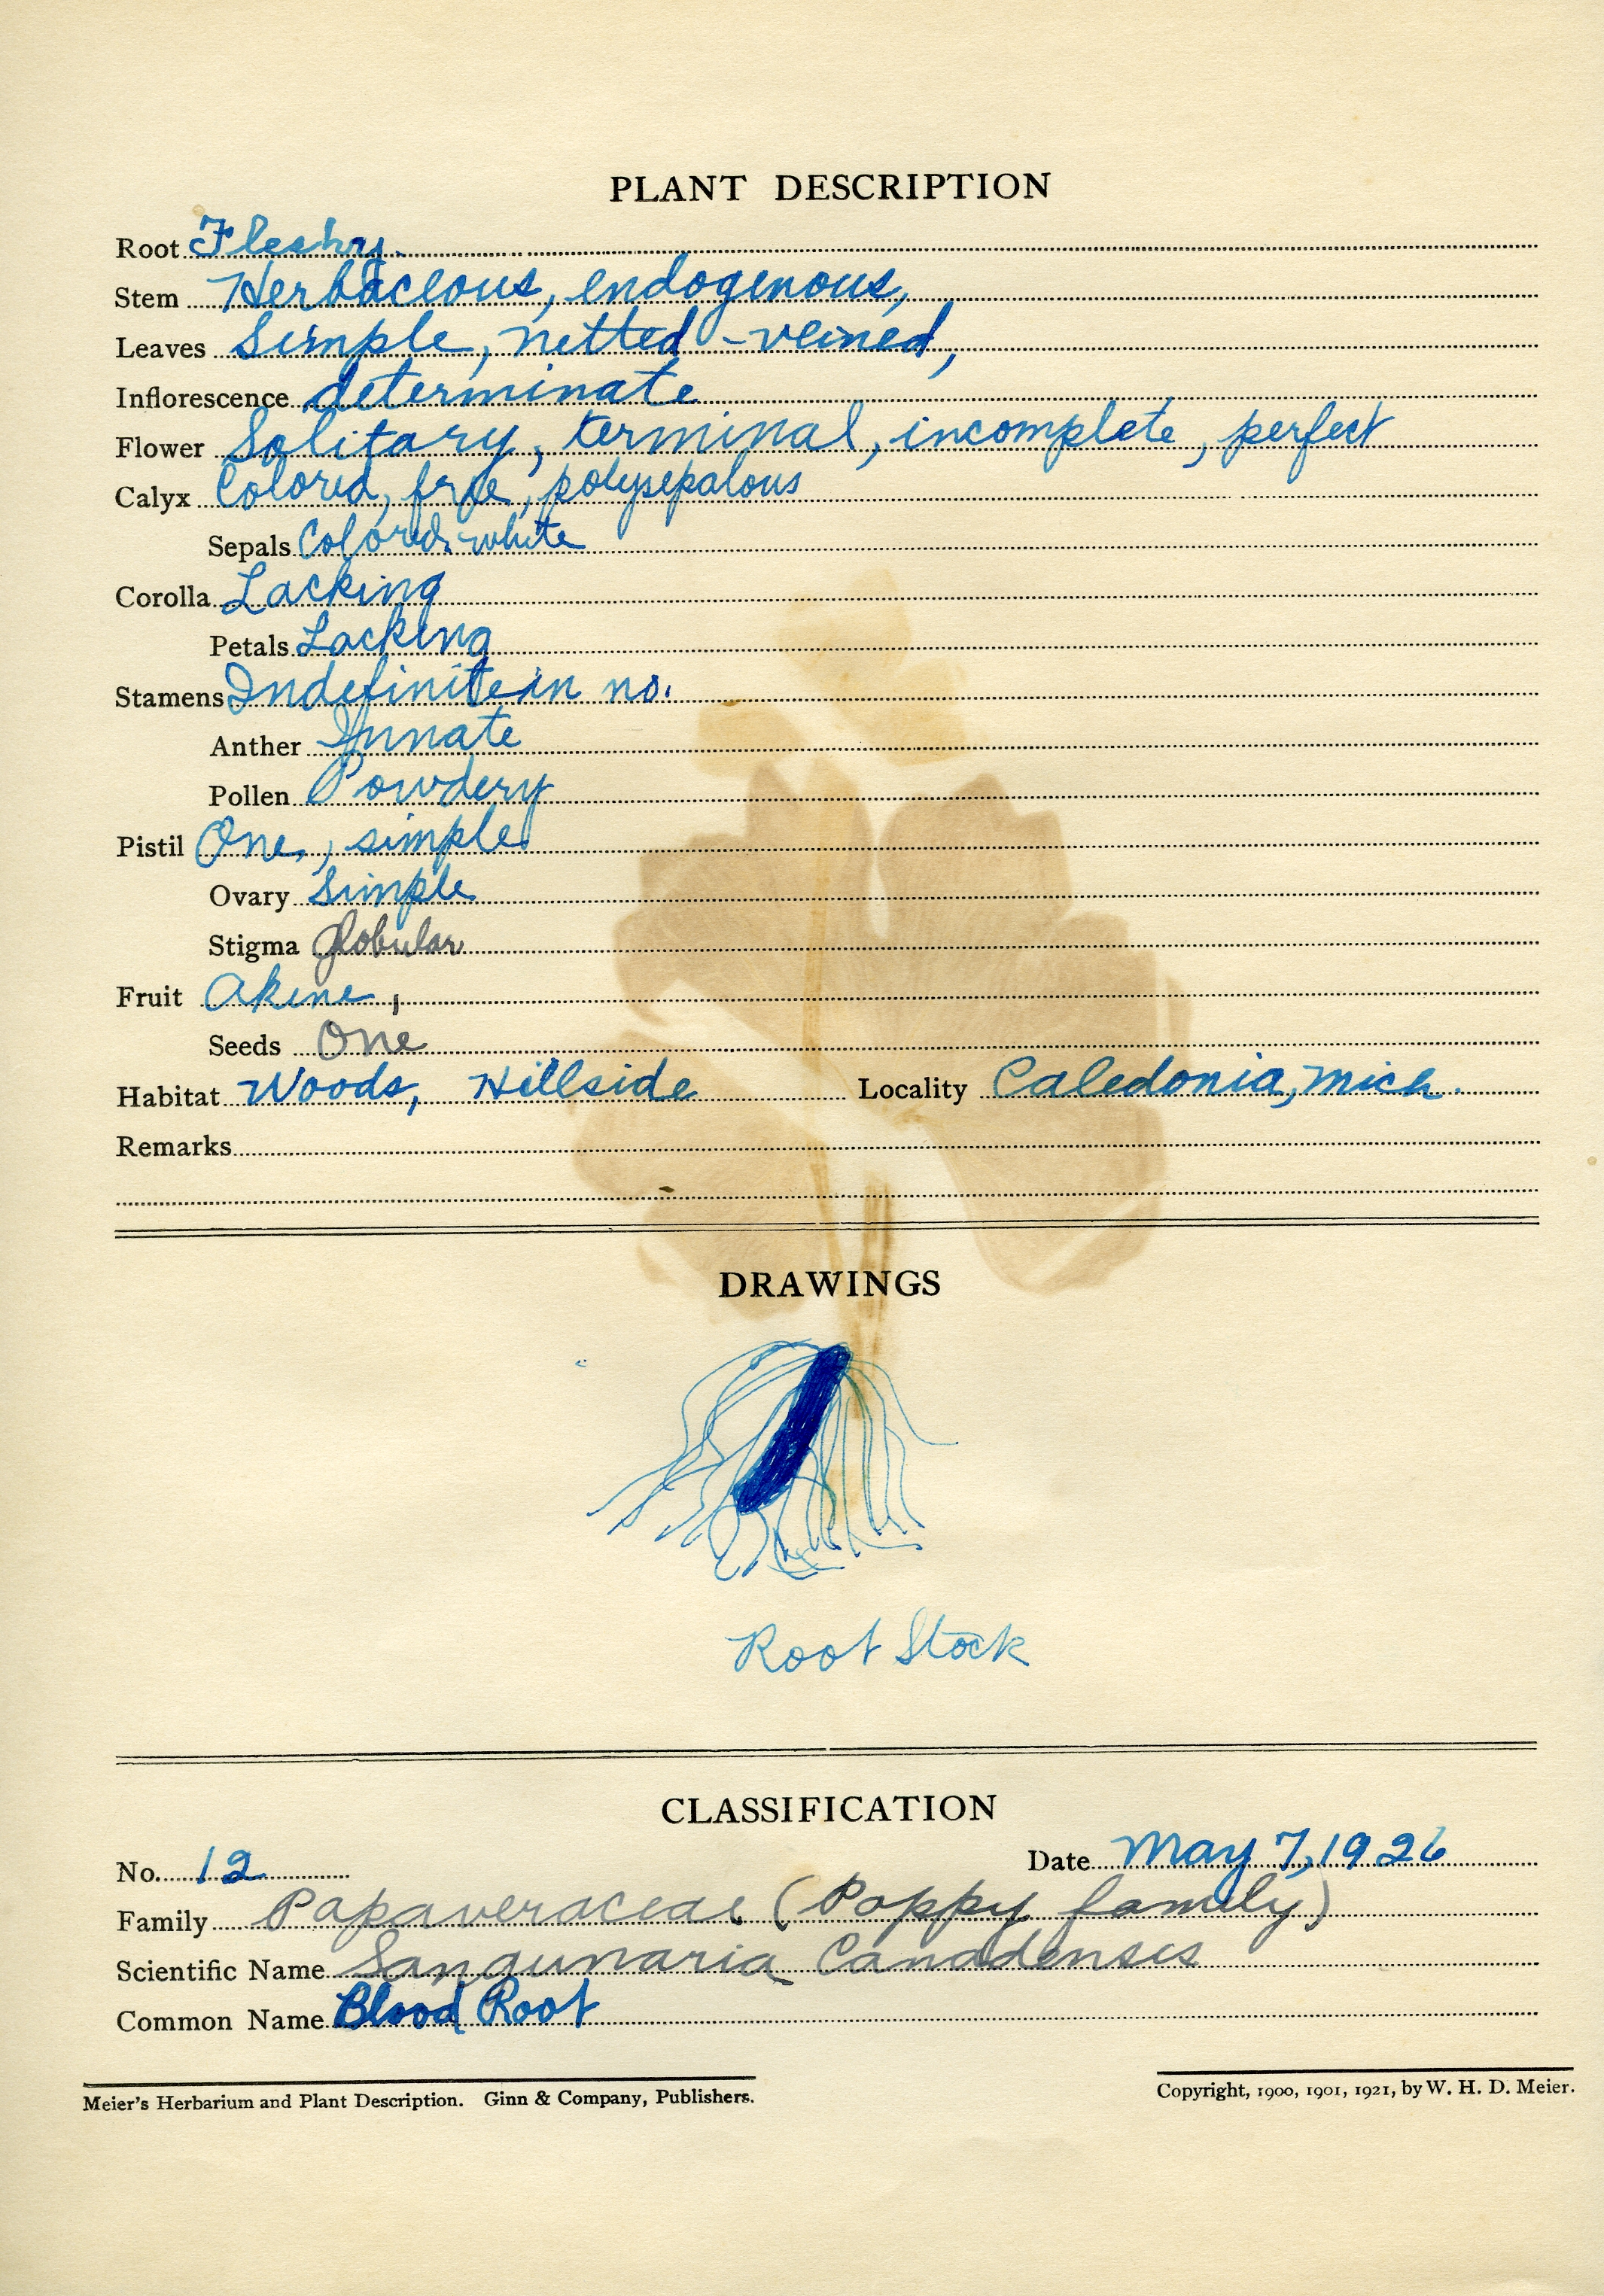 PLANT DESCRIPTION
Root Fleshy.
Stem Herbaceous, endogenous,
Leaves Simple, netted-veined,
Inflorescence determinate
Flower Solitary, terminal, incomplete, perfect
Calyx Colored, free, polysepalous
Sepals Colored, white
Corolla Lacking
Petals Lacking
Stamens Indefinite in no.
Anther Innate
Pollen Powdery
Pistil One, simple
Ovary Simple
Stigma globular
Fruit Akene,
Seeds One
Habitat Woods, Hillside Locality Caledonia, Mich.
Remarks
DRAWINGS
Root Stock
CLASSIFICATION
No. 12 Date May 7, 1926
Family Papaveraceae (Poppy family)
Scientific Name Sangunaria Canadensis
Common Name Blood Root
Meier's Herbarium and Plant Description. Ginn & Company, Publishers. Copyright, 1900, 1901, 1921, by W. H. D. Meier.